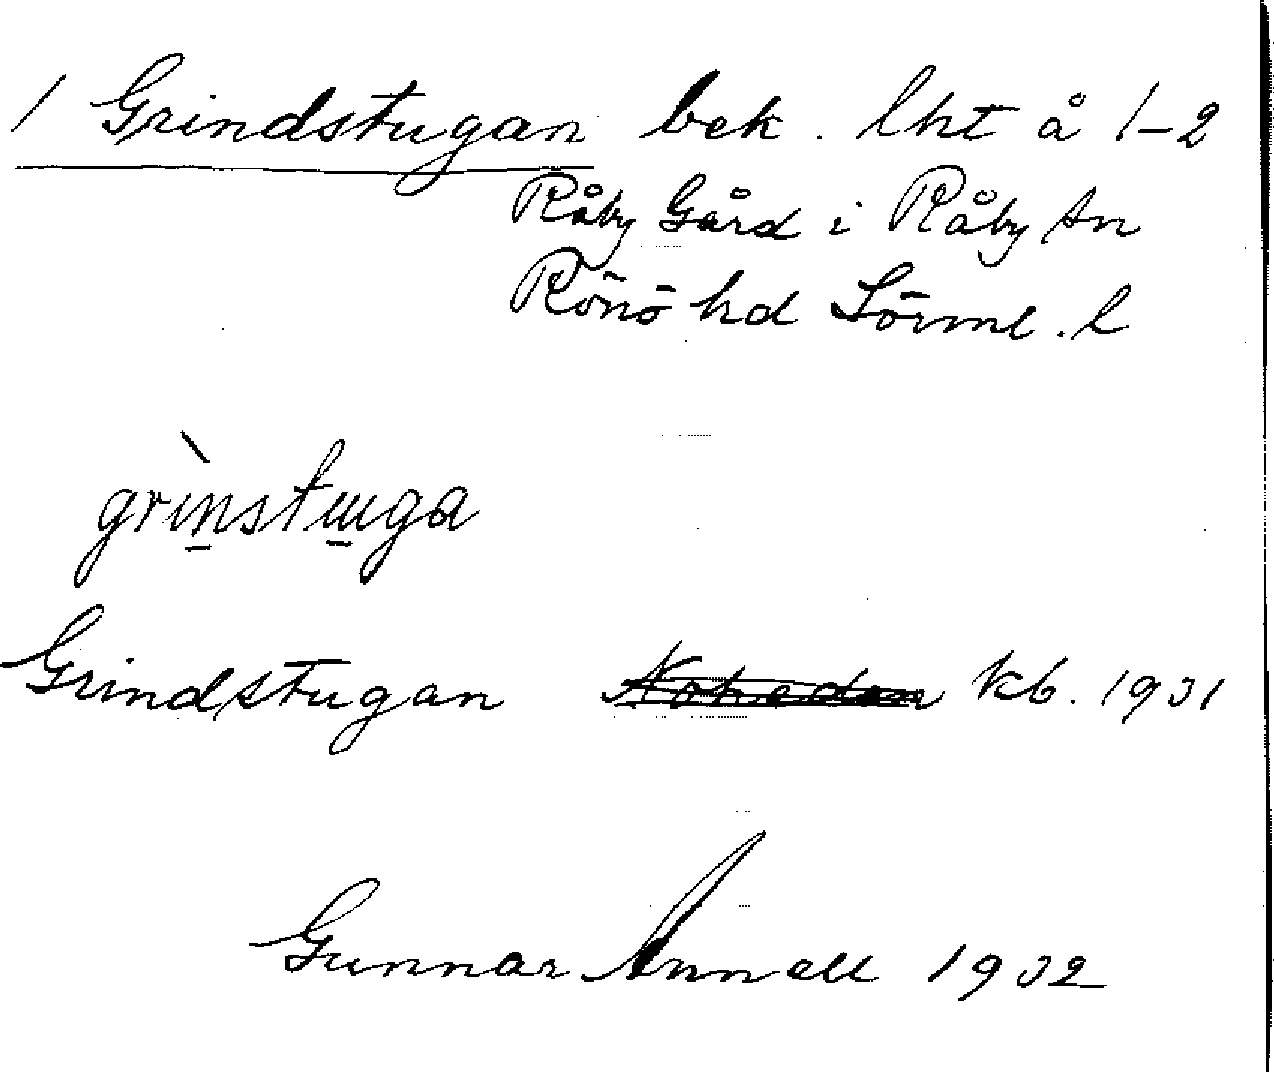 / Grindstugan bek. lht å 1-2
Råby Gård i Råby sn
Rönö hd Sörml. l
grinstuga
Grindstugan kb. 1931
Gunnar Annell 1932